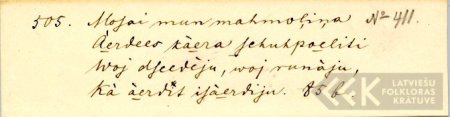 505. Mosai mun mahmoliņa № 411.
Äerdees käera schuhpoeliti
Woj dseedēju, woj runāju,
Kā äerdīt isäerdiju. 85 b.
LATVIEŠU
FOLKLORAS
KRATUVE